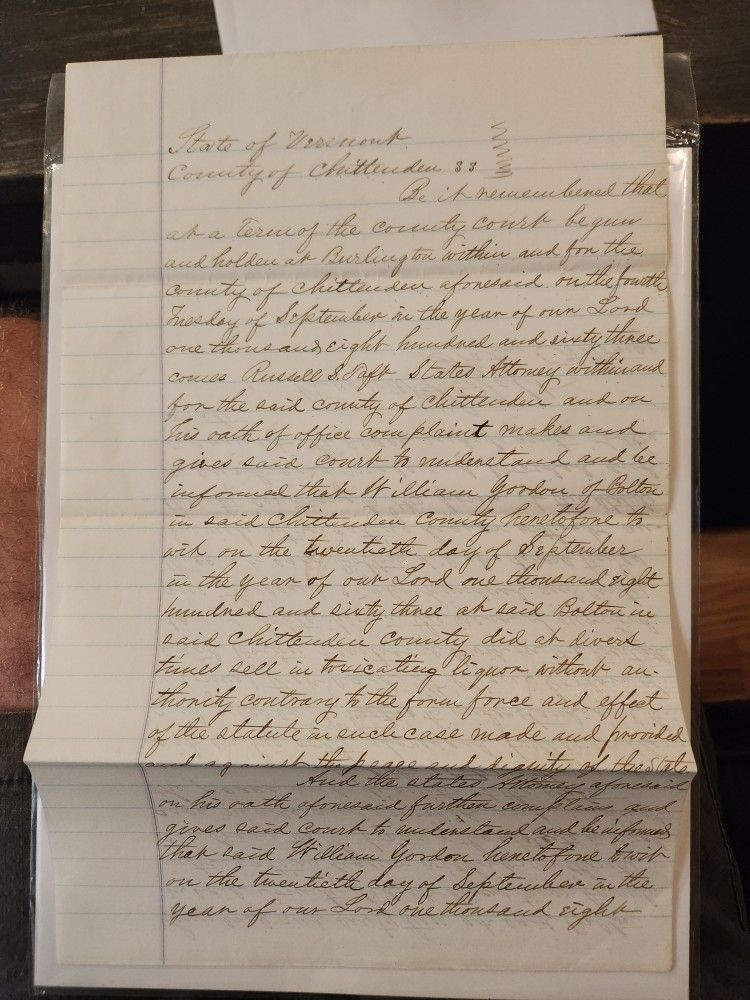 State of Vermont
County of Chittenden ss
Be it remembered that
at a Term of the county court begun
and holden at Burlington within and for the
county of Chittenden aforesaid on the fourth
Tuesday of September in the year of our Lord
one thousand eight hundred and sixty three
comes Russell S. Taft States Attorney within and
for the said county of Chittenden and on
his oath of office complaint makes and
gives said court to understand and be
informed that William Gordon of Bolton
in said Chittenden County heretofore to
wit on the twentieth day of September
in the year of our Lord one thousand eight
hundred and sixty three at said Bolton in
said Chittenden County did at divers
times sell intoxicating liquor without au-
thority contrary to the form force and effect
of the statute in such case made and provided
and against the peace and dignity of the State
And the states Attorney aforesaid
on his oath aforesaid further complains and
gives said court to understand and be informed
that said William Gordon heretofore to wit
on the twentieth day of September in the
year of our Lord one thousand eight